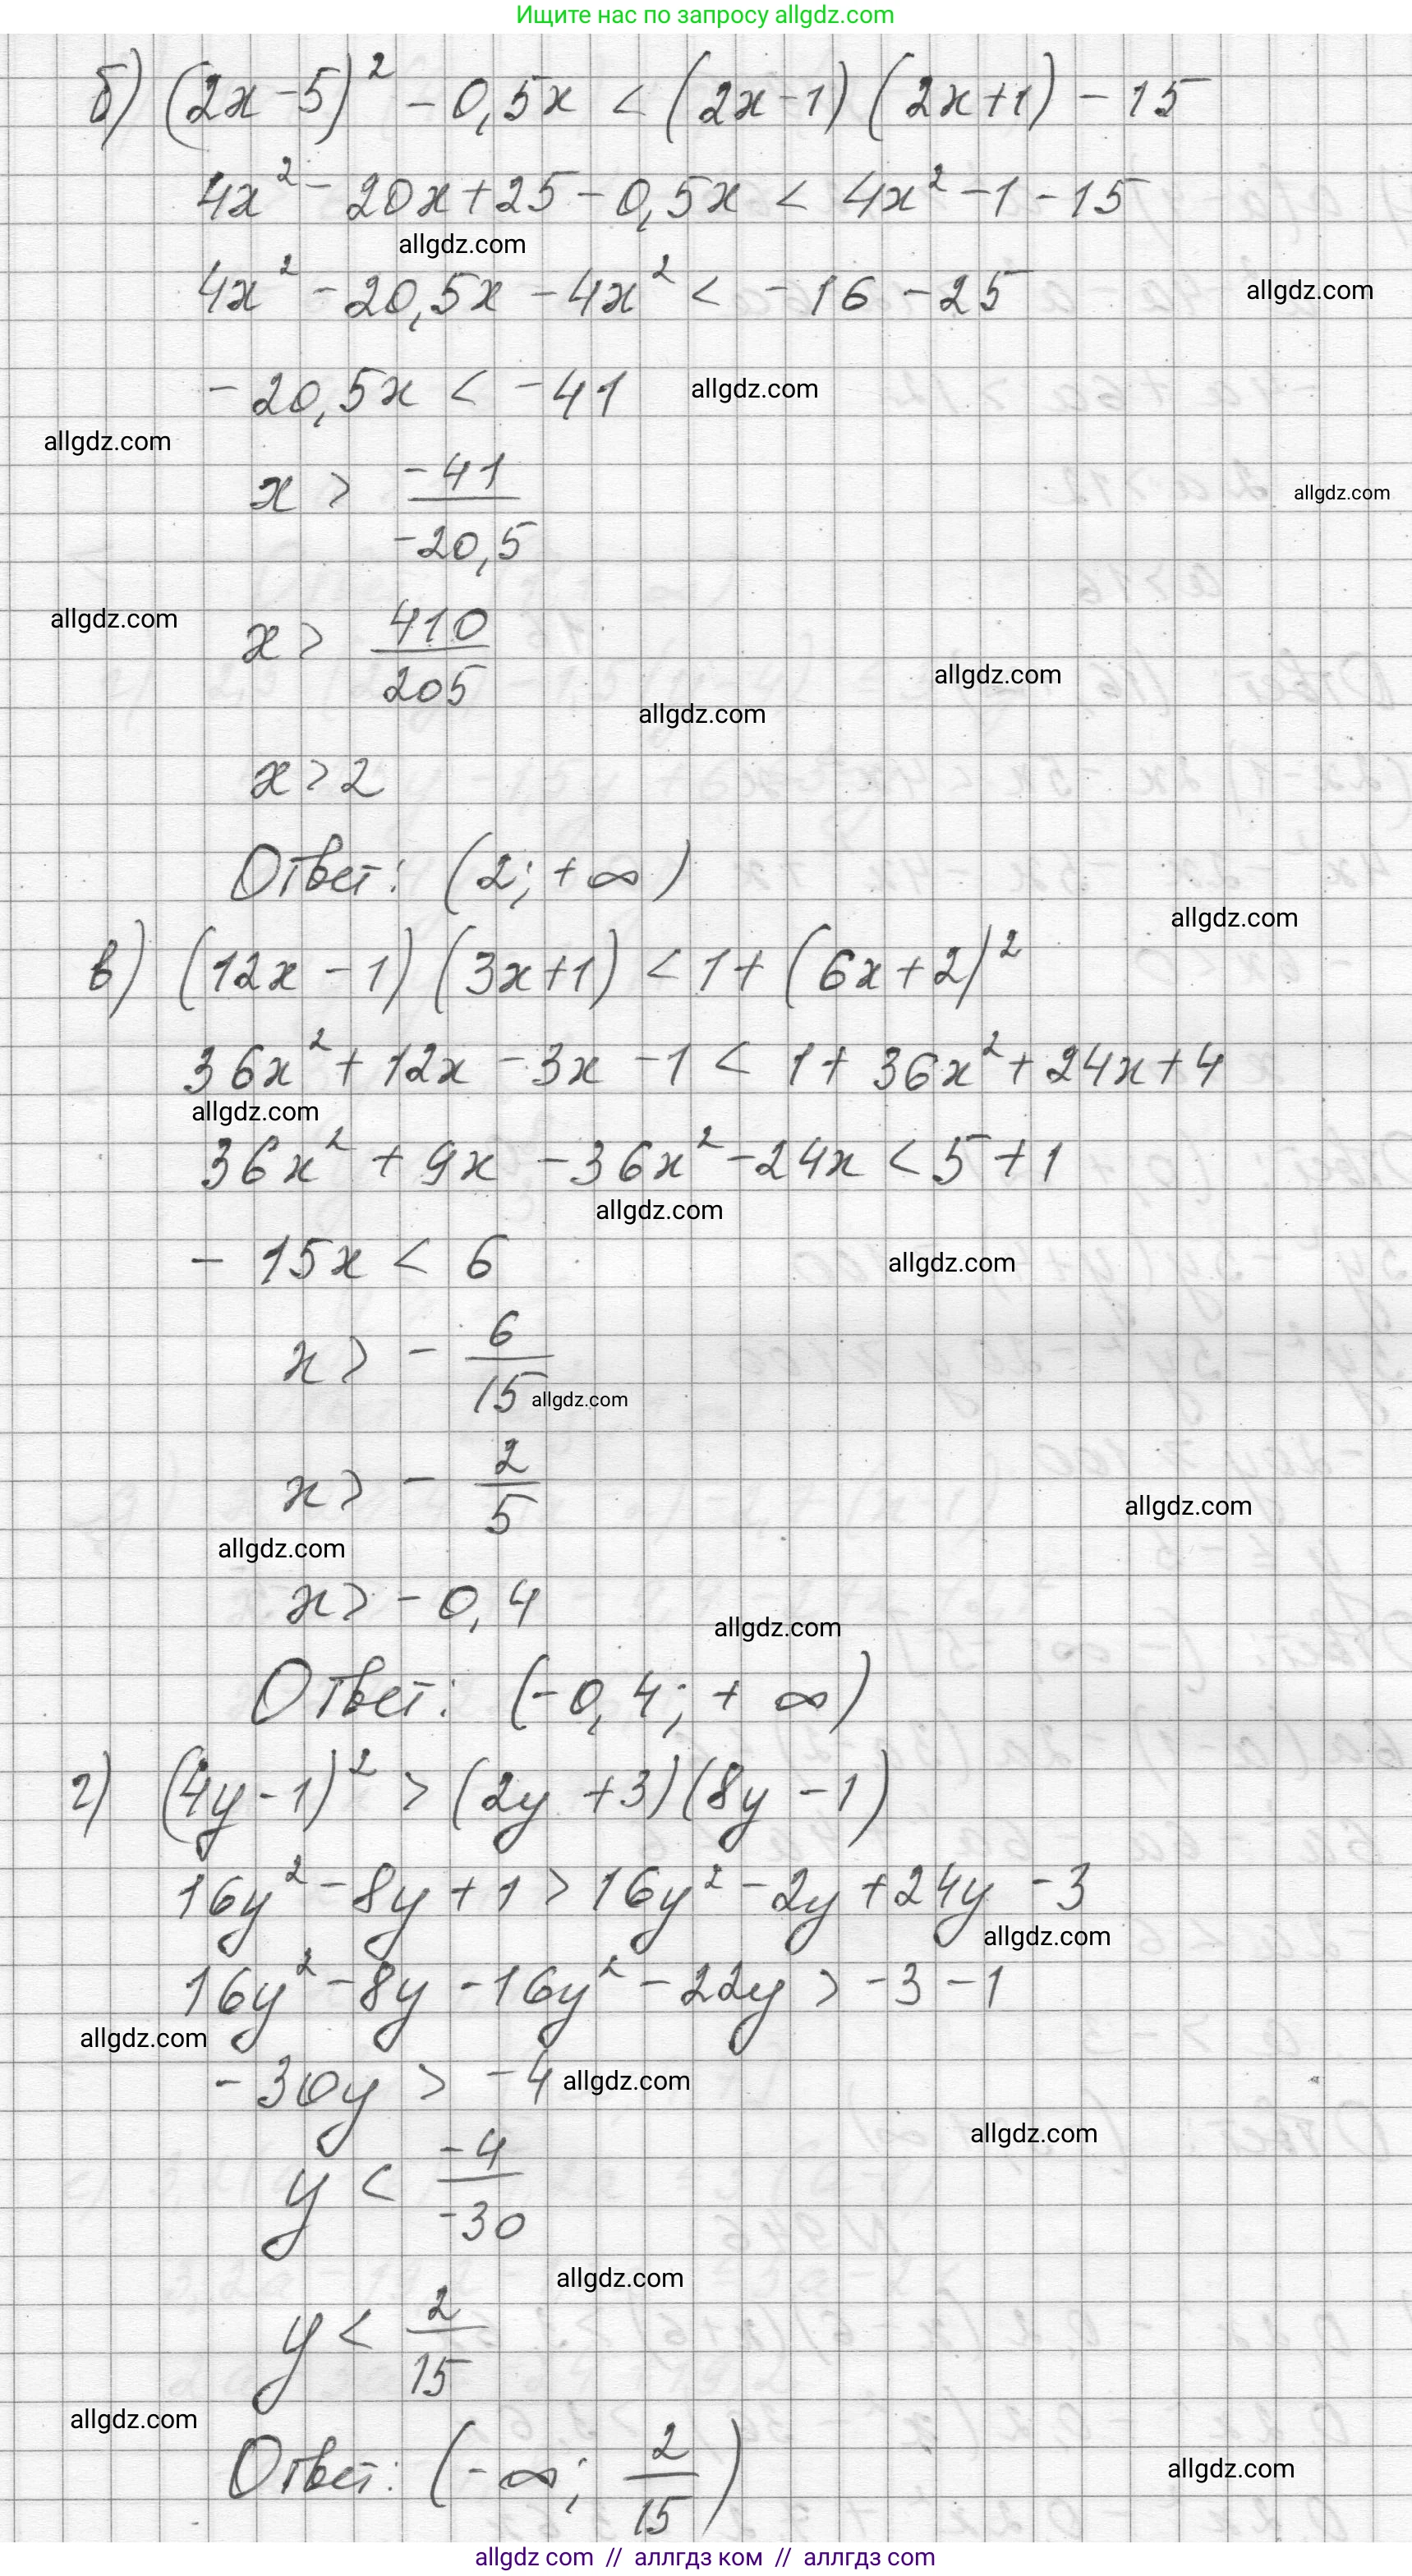 Ищите нас по запросу allgdz.com
б) (2x-5)² - 0,5x < (2x-1)(2x+1) - 15
4x² - 20x + 25 - 0,5x < 4x² - 1 - 15
allgdz.com
4x² - 20,5x - 4x² < -16 - 25
allgdz.com
-20,5x < -41
allgdz.com
allgdz.com
x > -41/-20,5
allgdz.com
allgdz.com
x > 410/205
allgdz.com
allgdz.com
x > 2
Ответ: (2; +∞)
allgdz.com
в) (12x-1)(3x+1) < 1 + (6x+2)²
36x² + 12x - 3x - 1 < 1 + 36x² + 24x + 4
allgdz.com
36x² + 9x - 36x² - 24x < 5 + 1
allgdz.com
-15x < 6
allgdz.com
x > - 6/15
allgdz.com
x > - 2/5
allgdz.com
allgdz.com
x > -0,4
allgdz.com
Ответ: (-0,4; +∞)
г) (4y-1)² > (2y+3)(8y-1)
16y² - 8y + 1 > 16y² - 2y + 24y - 3
allgdz.com
16y² - 8y - 16y² - 22y > -3 - 1
allgdz.com
-30y > -4
allgdz.com
allgdz.com
y < -4/-30
allgdz.com
y < 2/15
allgdz.com
Ответ: (-∞; 2/15)
allgdz.com
allgdz com // аллгдз ком // аллгдз com